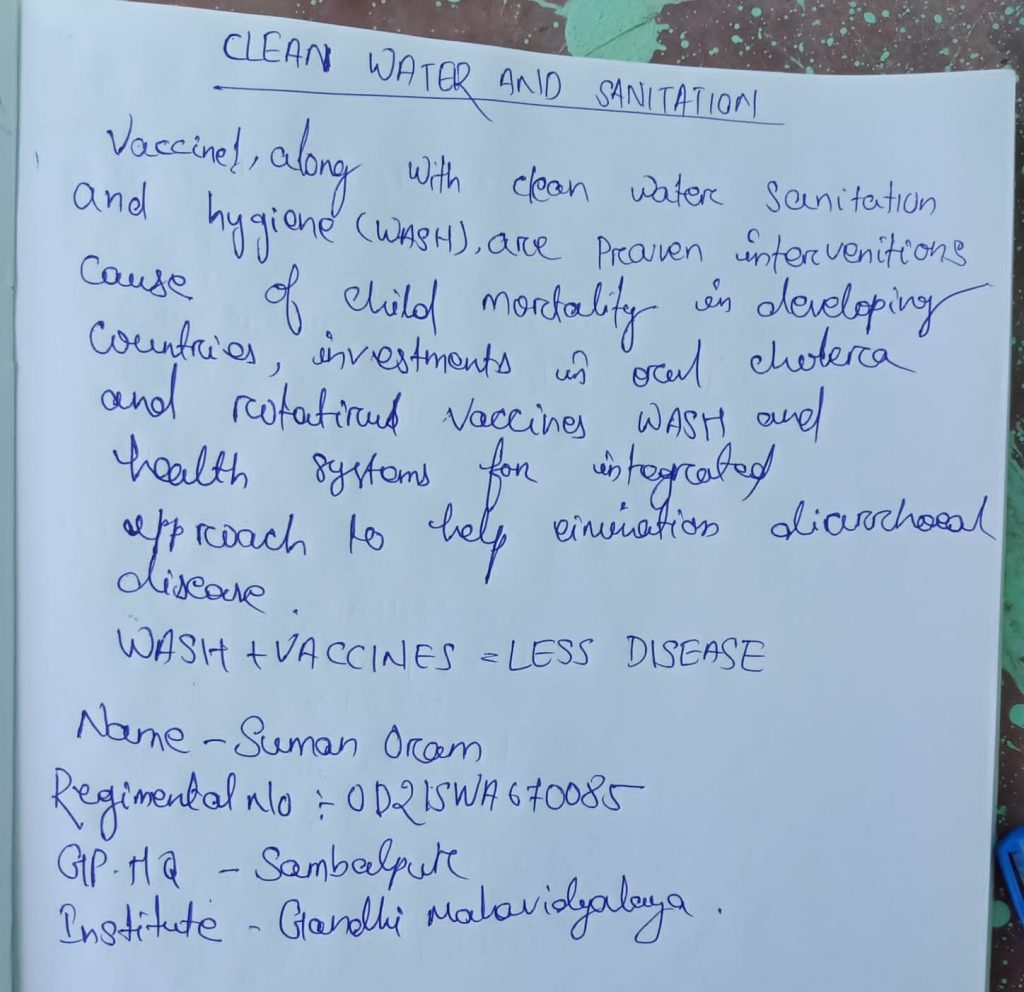 CLEAN WATER AND SANITATION
Vaccines, along with clean water sanitation
and hygiene (WASH), are Proven intervenitions
Cause of child mortality in developing
Countries, investments in oral cholera
and rotatirus Vaccines WASH and
health systems for integrated
approach to help diarrhoeal
disease.
WASH + VACCINES = LESS DISEASE
Name - Suman Oram
Regimental No :- OD21SWA670085
GP. HQ - Sambalpur
Institute - Gandhi Mahavidyalaya.